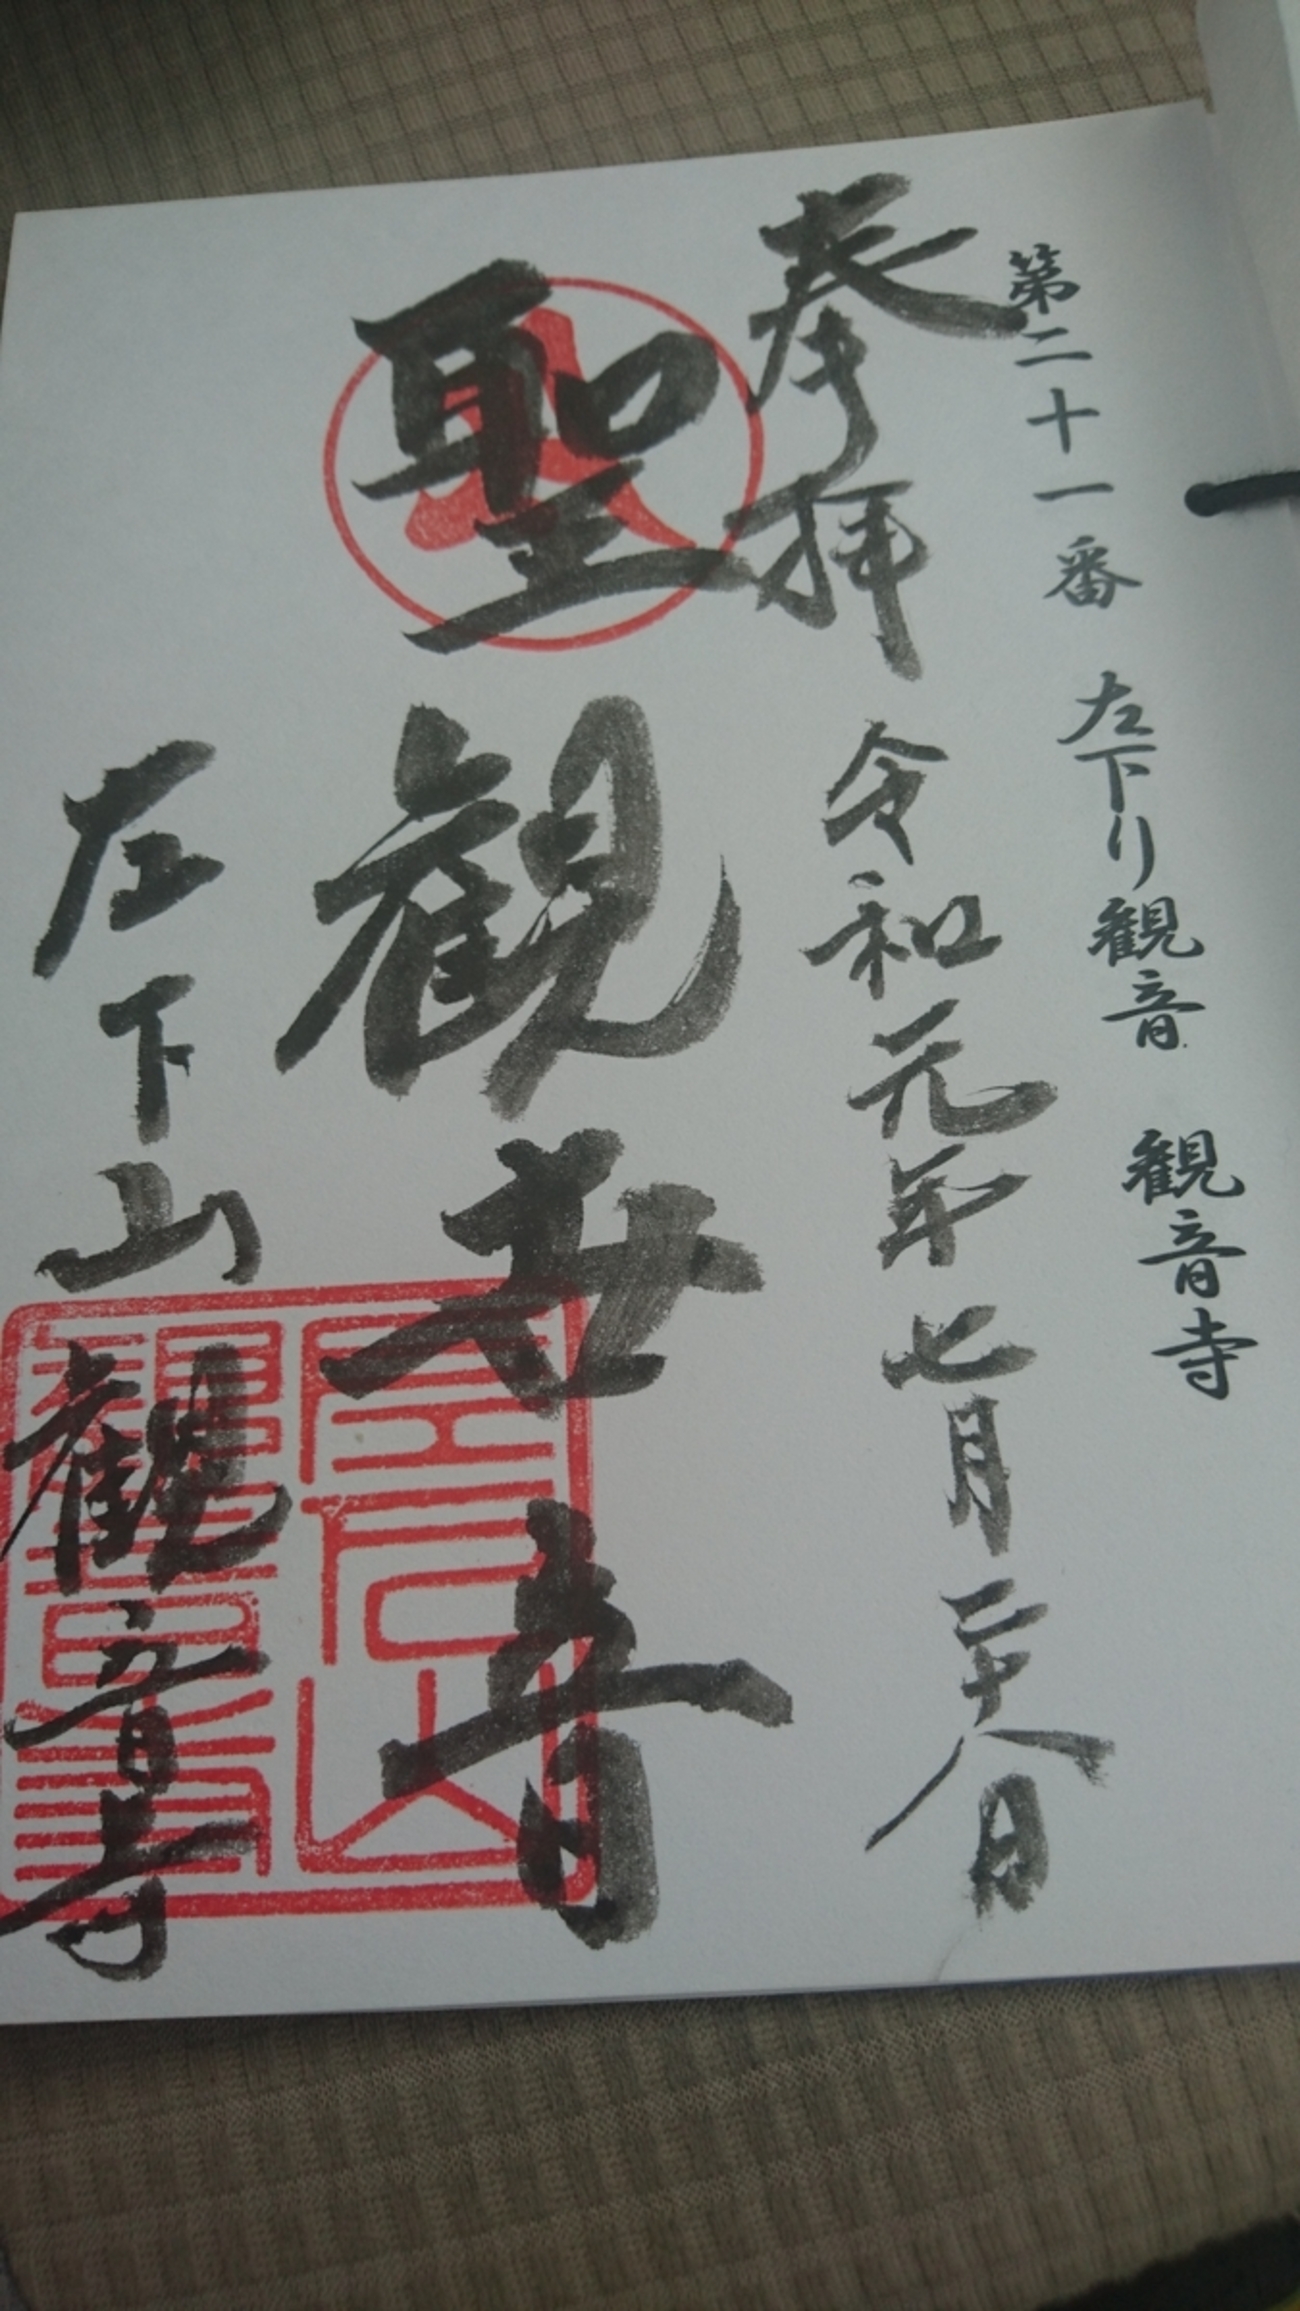 第二十一番 左下り観音 観音寺
奉拝 令和元年七月二十八日
聖観世音
左下山観音寺